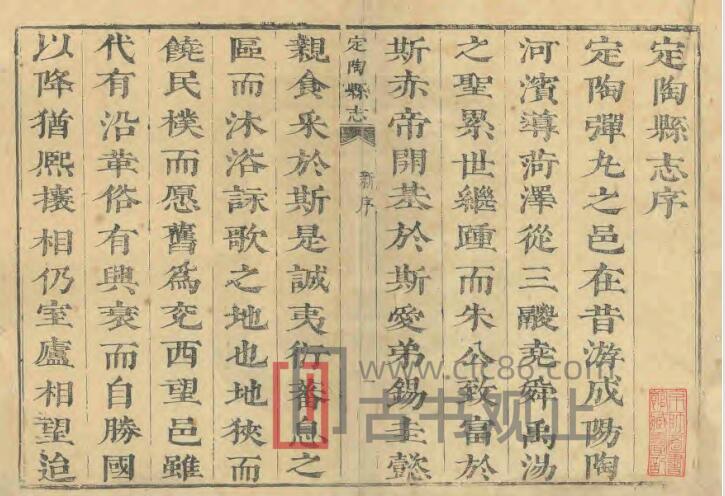 定陶縣志序
定陶彈丸之邑在昔游成陽陶
河濱導菏澤從三朡堯舜禹湯
之聖累世繼踵而朱公致富於
斯赤帝開基於斯愛弟錫圭懿
定陶縣志
新序
一
親食采於斯是誠夷衍蕃息之
區而沐浴詠歌之地也地狹而
饒民樸而愿舊爲兖西望邑雖
代有沿革俗有興衰而自勝國
以降猶熈攘相仍室廬相望迨
www.cjc86.com
古书观止